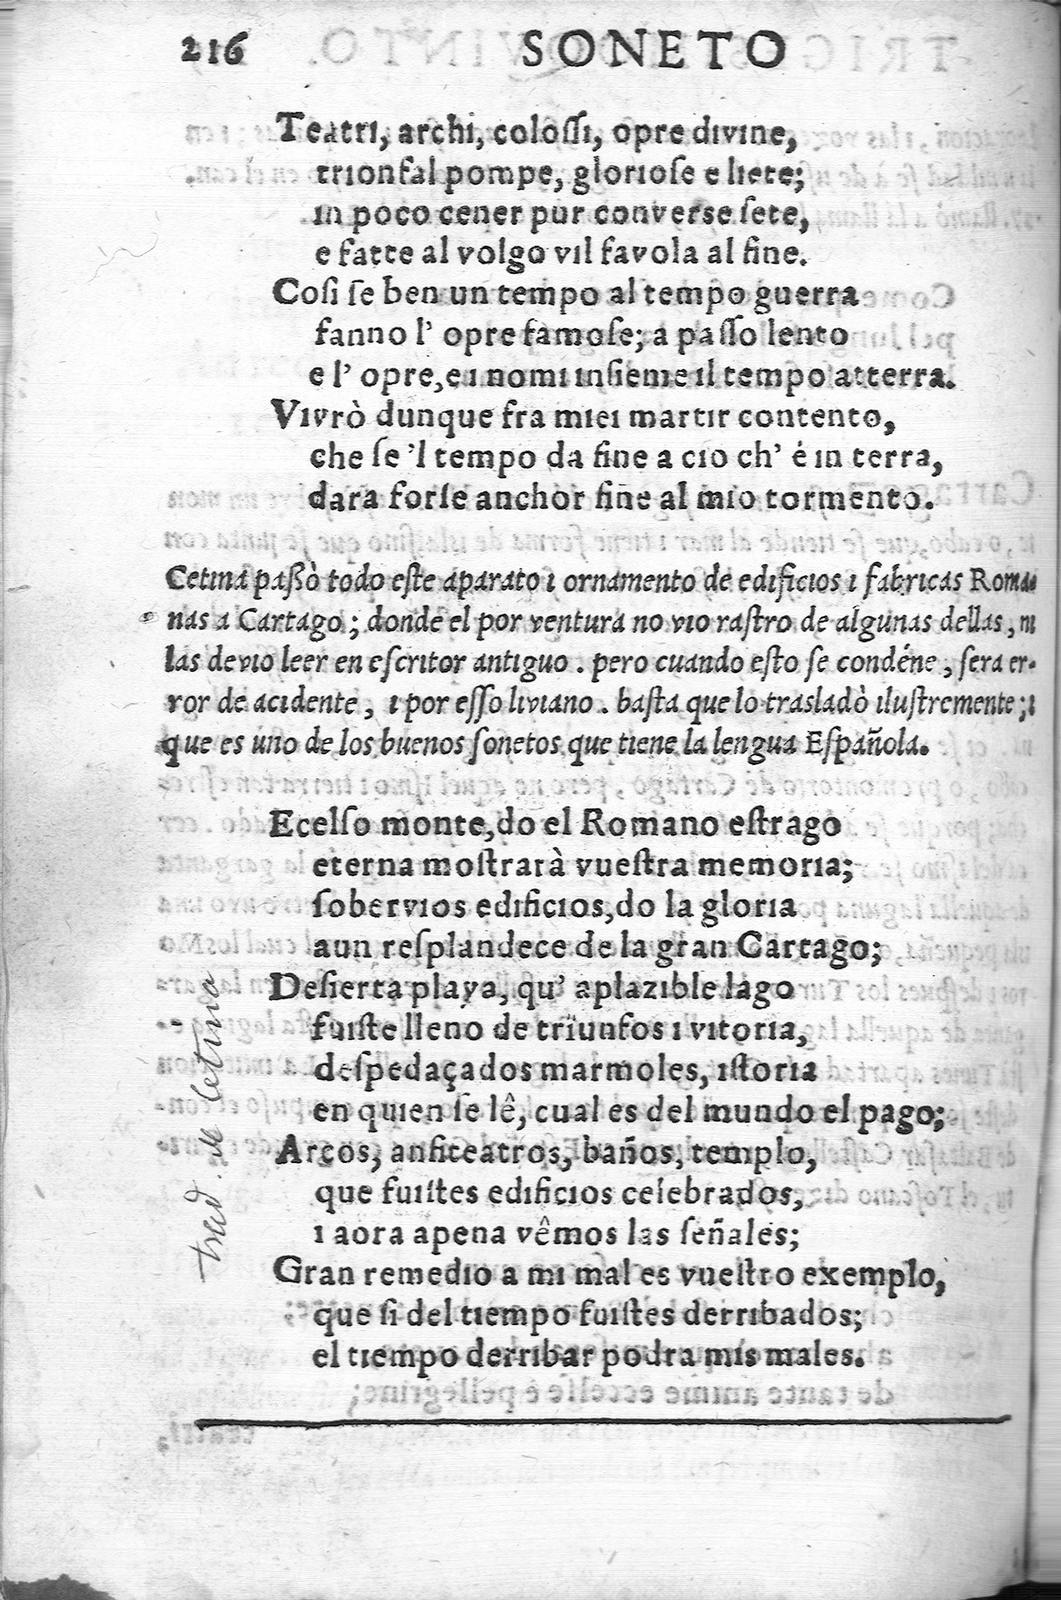 216 SONETO
Teatri, archi, colossi, opre divine,
trionfal pompe, gloriose e liete;
in poco cener pur converse sete,
e fatte al volgo vil favola al fine.
Cosi se ben un tempo al tempo guerra
fanno l' opre famose; a passo lento
e l' opre, e i nomi insieme il tempo atterra.
Vivrò dunque fra miei martir contento,
che se 'l tempo da fine a cio ch' é in terra,
dara forse anchor fine al mio tormento.
Cetina passò todo este aparato i ornamento de edificios i fabricas Roma-
nas a Cartago; donde el por ventura no vio rastro de algunas dellas, ni
las devio leer en escritor antiguo. pero cuando esto se condéne, sera er-
ror de acidente, i por esso liviano. basta que lo trasladò ilustremente; i
que es uno de los buenos sonetos que tiene la lengua Española.
Ecelso monte, do el Romano estrago
eterna mostrarà vuestra memoria;
sobervios edificios, do la gloria
aun resplandece de la gran Cartago;
Desierta playa, qu' aplazible lago
fuiste lleno de triunfos i vitoria,
despedaçados marmoles, istoria
en quien se lê, cual es del mundo el pago;
Arcos, anfiteatros, baños, templo,
que fuistes edificios celebrados,
i aora apena vêmos las señales;
Gran remedio a mi mal es vuestro exemplo,
que si del tiempo fuistes derribados;
el tiempo derribar podra mis males.
trad. de Cetina